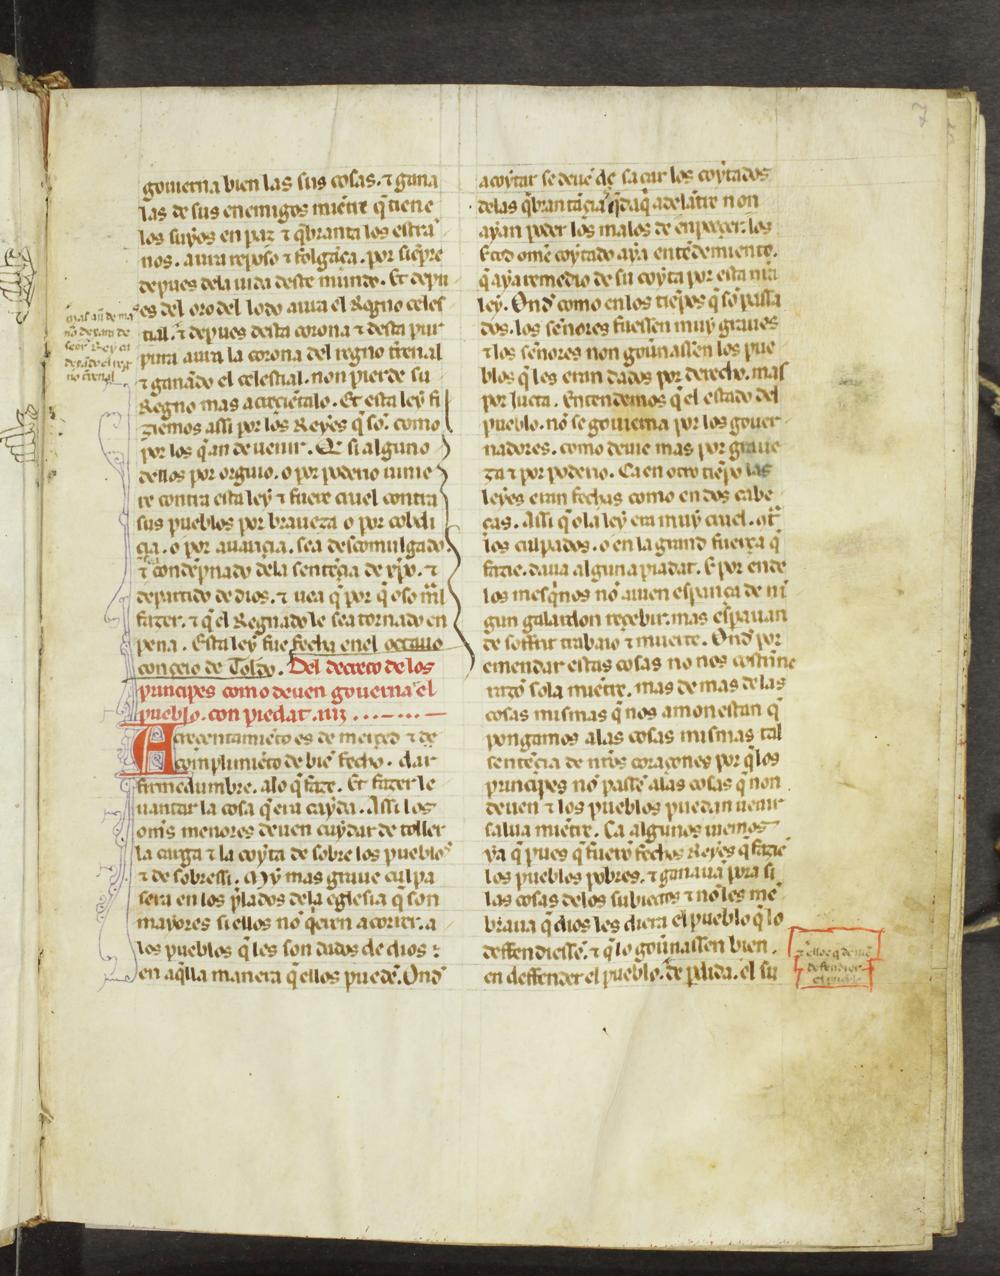 7
gouierna bien las sus cosas. ⁊ gana
las de sus enemigos miẽtre q̃ tiene
los suyos en paz ⁊ q̃branta los estra
nos. aura reposo ⁊ folgãça. por siẽpre
depues dela uida deste mundo. Et depu
es del oro del lodo aura el Regno celes
tial. ⁊ depues desta corona ⁊ desta pur
pura aura la corona del regno t̃renal
⁊ ganãdo el celestial. non pierde su
Regno mas acreciẽtalo. Et esta ley fi
ziemos assi por los Reyes q̃ sõ. como
por los q̃ an de venir. Et si alguno
dellos por orguio. o por poderio uinie
re contra esta ley ⁊ fuere cruel contra
sus pueblos por braueza o por cobdi
cia. o por auaricia. sea descomulgado.
⁊ condẽpnado dela sentẽcia de xp̃o. ⁊
departido de dios. ⁊ uea q̃ por q̃ oso mal
fazer. ⁊ q̃ el Regnado le sea tornado en
pena. Esta ley fue fecha enel octauo
conceio de Toledo. Del decreto de los
principes como deuen gouernar el
pueblo. con piedat.
Acrecentamiẽto es de merced ⁊ de
complimiẽto de biẽ fecho. dar
firmedumbre. alo q̃ faze. Et fazer le
uantar la cosa q̃ era cayda. Assi los
om̃s menores deuen cuydar de toller
la carga ⁊ la coyta de sobre los pueblos
⁊ de sobressi. Muy mas graue culpa
sera en los p̃lados dela eglesia q̃ son
mayores si ellos nõ q̃ren acorrer. a
los pueblos q̃ les son dados de dios:
en aq̃lla manera q̃ ellos puedẽ. Ond̃
acoytar se deuẽ de sacar los coytados
delas q̃brantãcias q̃ daq̃ adelãtre non
ayan poder los malos de enpeçer. los
E tod ome coytado aya entẽdemiento.
q̃ aya remedio de su coyta por esta nr̃a
ley. Ond̃ como en los tiẽpos q̃ sõ passa
dos. los señores fuessen muy graues
⁊ los señores non gou̾nassen los pue
blos q̃ les eran dados por derecho. mas
por fuerça. Entendemos q̃ el estado del
pueblo. nõ se gouierna por los gouer
nadores. como deuie mas por graue
za ⁊ por poderio. Ca en otro tiẽpo las
leyes eran fechas como en dos cabe
ças. Assi q̃ o la ley era muy cruel.
los culpados. o en la grand fuerça q̃
fazie. daua alguna piadat. E por ende
los mesq̃nos nõ auien esperança de nĩ
gun galardon reçebir. mas esperauan
de soffrir trabaio ⁊ muerte. Ond̃ por
emendar estas cosas no nos costrine
sola miẽtre. mas de mas delas
cosas mismas q̃ nos amonestan q̃
pongamos alas cosas mismas tal
sentẽcia de nr̃os coraçones por q̃ los
principes nõ passẽ alas cosas q̃ non
deuen ⁊ los pueblos puedan uenir
salua miẽtre. Ca algunos uiemos
ya q̃ pues q̃ fuerõ fechos Reyes q̃ fazie
los pueblos pobres. ⁊ ganauã pora si
las cosas delos subiectos ⁊ nõ les me
braua q̃ dios les diera el pueblo q̃ lo
deffendiessẽ. ⁊ q̃ lo gou̾nassen bien.
en deffender el pueblo. de p̾dida. el su
defender